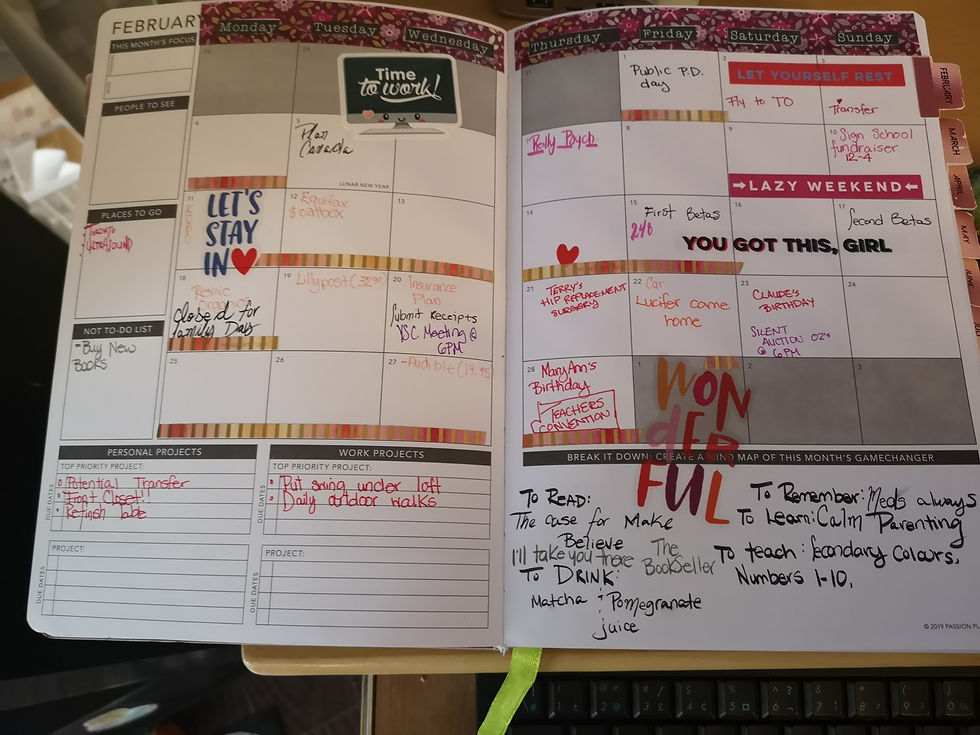 FEBRUARY
Monday
Tuesday
Wednesday
THIS MONTH'S FOCUS
PEOPLE TO SEE
PLACES TO GO
TORONTO
ULTRASOUND
NOT TO-DO LIST
-Buy New
BOOKS
29
Time
to work!
4
5
Plan
Canada
LUNAR NEW YEAR
11
LET'S
STAY
IN
12
Equifax
13
18
closed for
family Day
19
Lillypost
20
Insurance
Plan
Submit Receipts
YSC Meeting @
6PM
25
26
27
-Audible (14.95)
PERSONAL PROJECTS
TOP PRIORITY PROJECT:
Potential Transfer
Front Closet!!
Refinish Table
DUE DATES
PROJECT:
DUE DATES
WORK PROJECTS
TOP PRIORITY PROJECT:
Put swing under loft
Daily outdoor walks
DUE DATES
PROJECT:
DUE DATES
Thursday
Friday
Saturday
Sunday
31
1
Public P.D.
day
2
3
LET YOURSELF REST
Fly to TO
Transfer
8
9
10
Sign School
fundraiser
12-4
LAZY WEEKEND
14
15
First Betas
248
16
17
Second Betas
YOU GOT THIS, GIRL
21
TERRY'S
HIP REPLACEMENT
SURGERY
22
Car
Lucifer came
home
23
CLAUDE'S
BIRTHDAY
SILENT
AUCTION
@ 6PM
24
28
MaryAnn's
Birthday
TEACHERS
CONVENTION
1
2
3
WON
DER
FUL
BREAK IT DOWN: CREATE A MIND MAP OF THIS MONTH'S GAMECHANGER
To READ:
The case for Make
Believe
I'll take you there
The
BookSeller
To DRINK:
Matcha & Pomegranate
juice
To Remember: Meds always
To Learn: Calm Parenting
To teach: Secondary Colours,
Numbers 1-10.
© 2019 PASSION PL
FEBRUARY
MARCH
APRIL
MAY